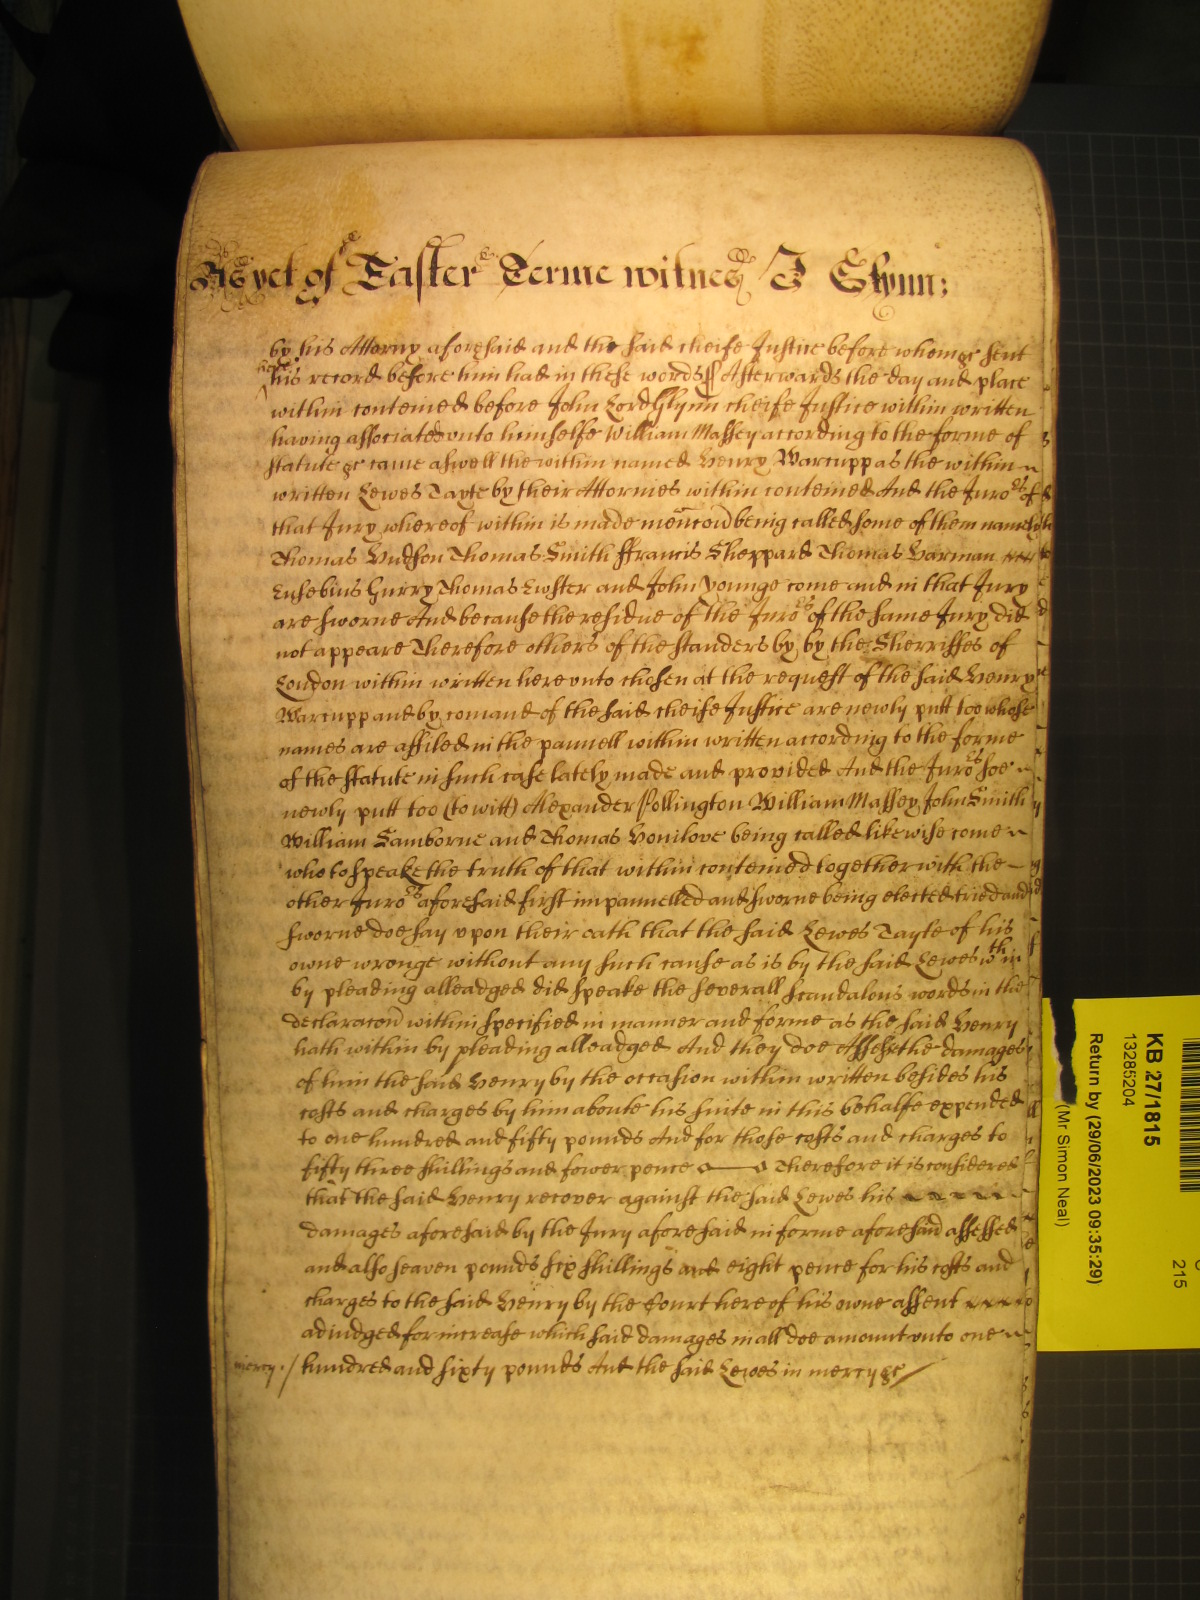 As yet of Easter Terme witnes J Glynn:
by his Attorny aforesaid and the said cheife Justice before whom &c sent
here his record before him had in these words ss Afterwards the day and place
within conteined before John Lord Glynn cheife Justice within written
having associated unto himselfe William Massey according to the forme of
statute &c came aswell the within named Henry Warcupp as the within
written Lewes Tayte by their Attornies within conteined And the Juro:rs of
that Jury whereof within is made mencon being called some of them namely
Thomas Hudson Thomas Smith ffrancis Sheppard Thomas Harman
Eusebius Gurry Thomas Ewster and John Younge come and in that Jury
are sworne And because the residue of the Juro:rs of the same Jury did
not appeare Therefore others of the standers by by the Sherriffes of
London within written hereunto chosen at the request of the said Henry
Warcupp and by comand of the said cheife Justice are newly putt too whose
names are affiled in the pannell within written according to the forme
of the statute in such case lately made and provided And the Juro:rs soe
newly putt too (to witt) Alexander Pollington William Massey John Smith
William Samborne and Thomas Bonilove being called likewise come
who to speake the truth of that within conteined together with the
other Juro:rs aforesaid first impannelled and sworne being elected tried and
sworne doe say upon their oath that the said Lewes Tayte of his
owne wronge without any such cause as is by the said Lewes w:th in
by pleading alleadged did speake the severall scandalous words in the
declaracon within specified in manner and forme as the said Henry
hath within by pleading alleadged And they doe Assesse the damages
of him the said Henry by the occasion within written besides his
costs and charges by him aboute his suite in this behalfe expended
to one hundred and fifty pounds And for those costs and charges to
fifty three shillings and fower pence Therefore it is considered
that the said Henry recover against the said Lewes his
damages aforesaid by the Jury aforesaid in forme aforesaid assessed
and also seaven pounds six shillings and eight pence for his costs and
charges to the said Henry by the Court here of his owne assent
adiudged for increase which said damages in all doe amount unto one
mercy ./ hundred and sixty pounds And the said Lewes in mercy &c/
KB 27/1815
13285204
Return by (29/06/2023 09:35:29)
(Mr Simon Neal)
215